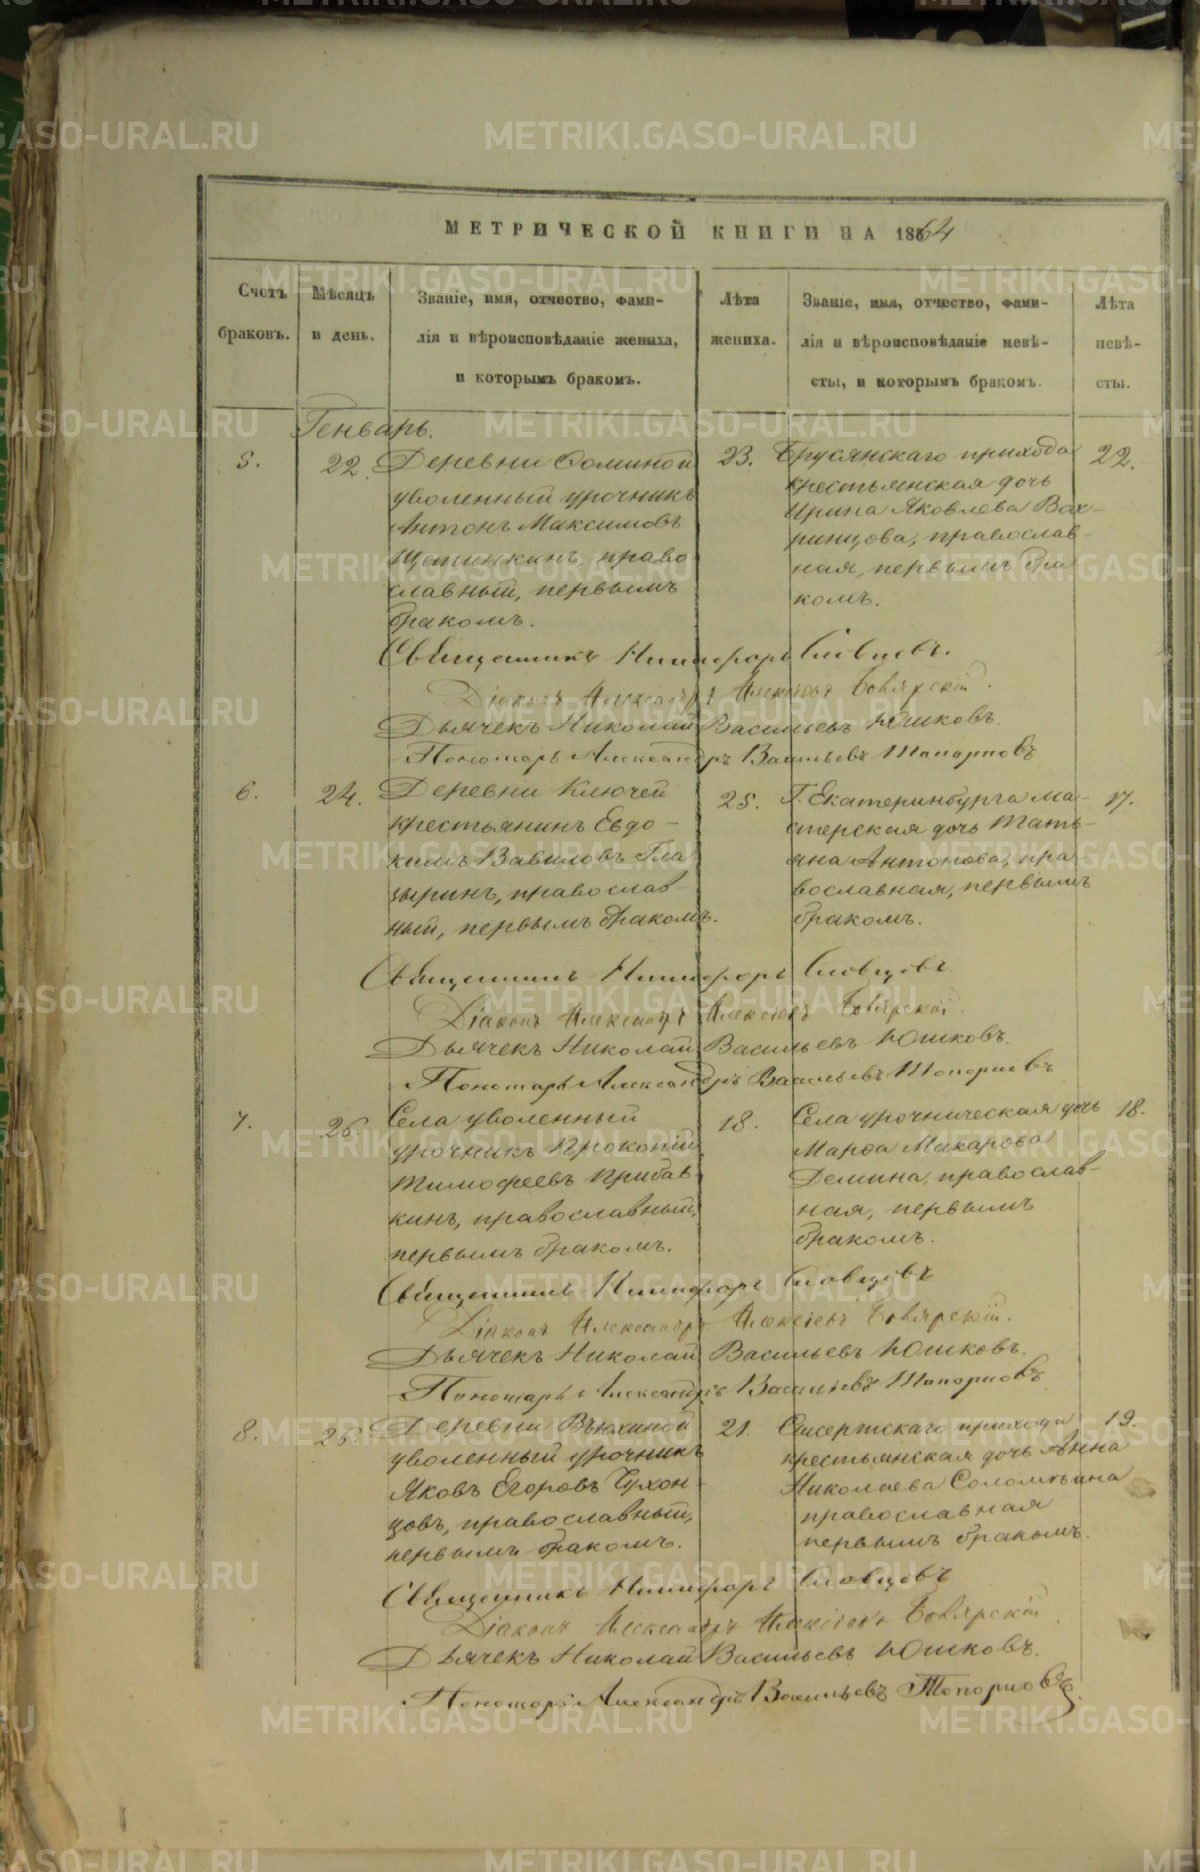 МЕТРИЧЕСКОЙ КНИГИ НА 1864
Счетъ браковъ.
Мѣсяцъ и день.
Званіе, имя, отчество, фами-
лія и вѣроисповѣданіе жениха,
и которымъ бракомъ.
Лѣта жениха.
Званіе, имя, отчество, фами-
лія и вѣроисповѣданіе невѣ-
сты, и которымъ бракомъ.
Лѣта невѣ-
сты.
Генварь.
5.
22.
Деревни Фоминой
уволенный урочникъ
Антонъ Максимовъ
Щетинкинъ, право
славный, первымъ
бракомъ.
23.
Брусянскаго прихода
крестьянская дочь
Ирина Яковлева Вах-
ринцова, православ-
ная, первымъ бра
комъ.
22.
Священникъ Никифоръ Словцовъ.
Діаконъ Александръ Алексіевъ Боярскій.
Дьячекъ Николай Васильевъ Юшковъ.
Пономарь Александръ Васильевъ Топорковъ
6.
24.
Деревни Ключей
крестьянинъ Евдо-
кимъ Вавиловъ Гла
зыринъ, православ-
ный, первымъ бракомъ.
25.
Г. Екатеринбурга ма-
стерская дочь Тать-
яна Антонова, пра
вославная, первымъ
бракомъ.
17.
Священникъ Никифоръ Словцовъ
Діаконъ Александръ Алексіевъ Боярскій.
Дьячекъ Николай Васильевъ Юшковъ.
Пономарь Александръ Васильевъ Топорковъ
7.
26
Села уволенный
урочникъ Прокопій
Тимофеевъ Прибав
кинъ, православный,
первымъ бракомъ.
18.
Села урочническая дочь
Марѳа Макарова
Демина, православ-
ная, первымъ
бракомъ.
18.
Священникъ Никифоръ Словцовъ
Діаконъ Александръ Алексіевъ Боярскій.
Дьячекъ Николай Васильевъ Юшковъ.
Пономарь Александръ Васильевъ Топорковъ
8.
26.
Деревни Вьюхиной
уволенный урочникъ
Яковъ Егоровъ Чухон-
цовъ, православный,
первымъ бракомъ.
21.
Сысертскаго прихода
крестьянская дочь Анна
Николаева Соломѣина
православная
первымъ бракомъ.
19.
Священникъ Никифоръ Словцовъ
Діаконъ Александръ Алексіевъ Боярскій
Дьячекъ Николай Васильевъ Юшковъ.
Пономарь Александръ Васильевъ Топорковъ.
METRIKI.GASO-URAL.RU